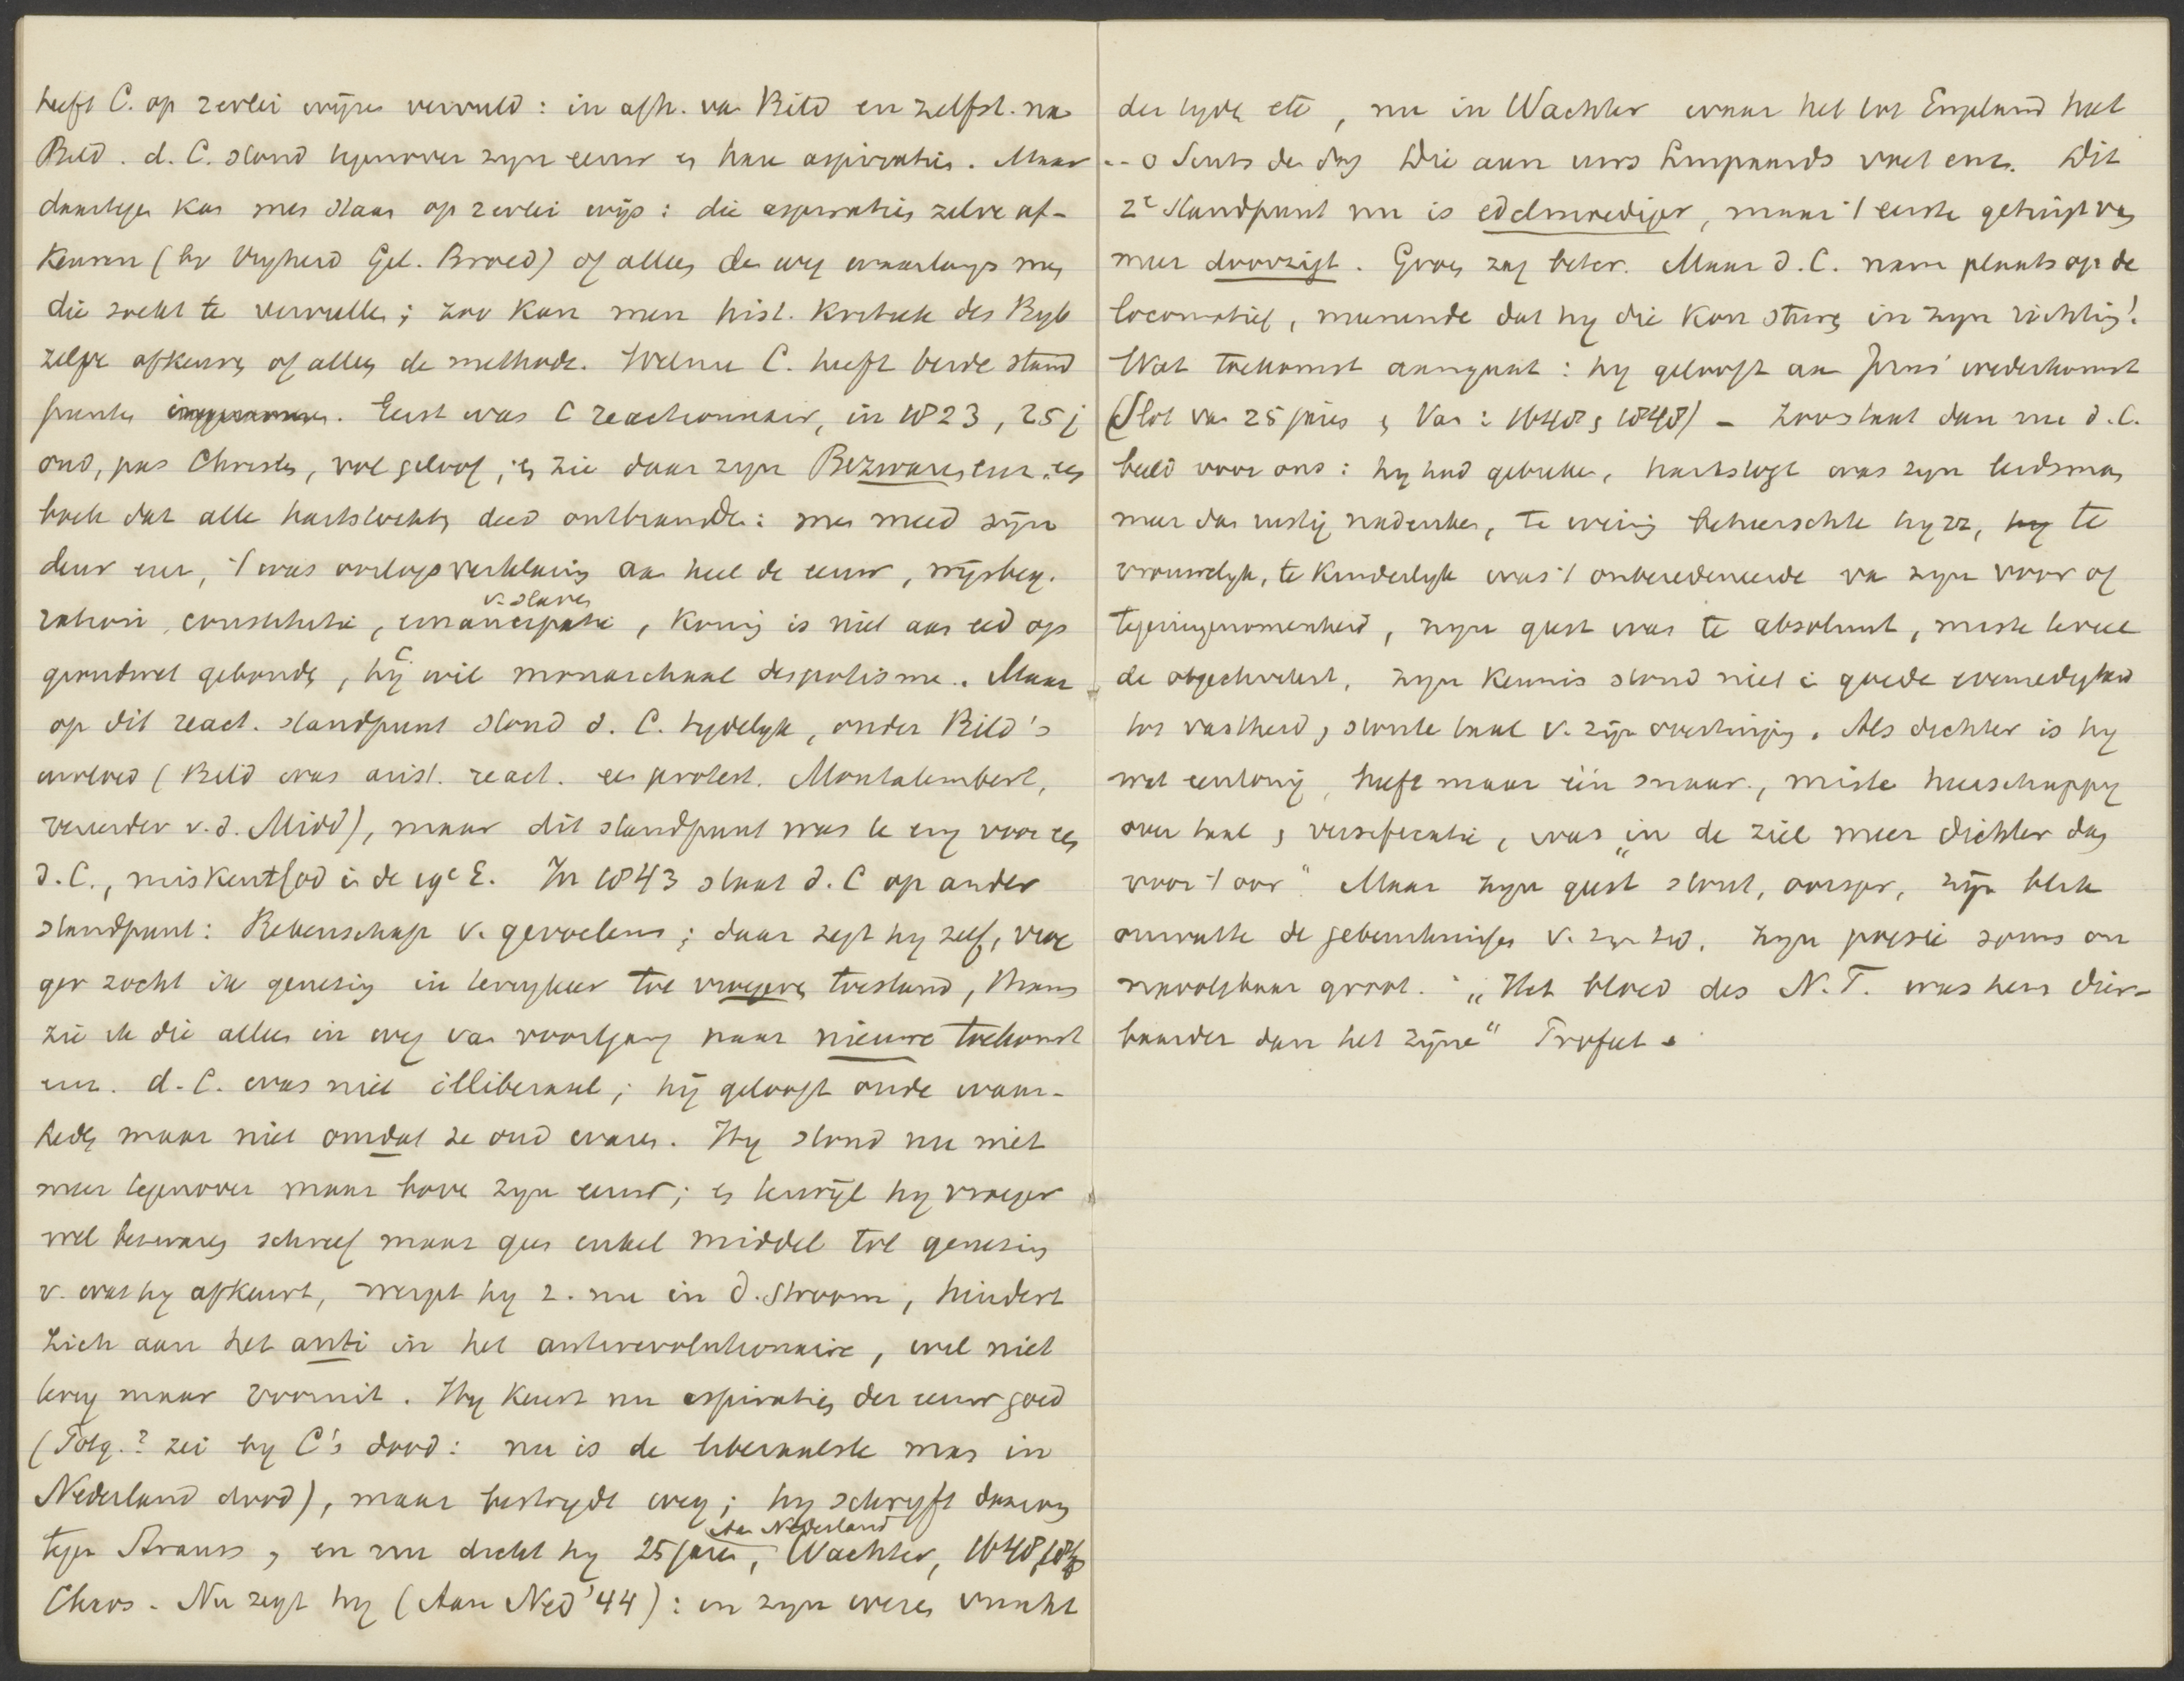 heeft C. op 2erlei wijze vervuld: in afh. van Bild en zelfst. na
Bild. d. C. stond tegenover zyn eeuw en hare aspiratiën. Maar
daartegen kan men staan op 2erlei wijs: die aspiratiën zelve af-
keuren (bv Vryheid Gel. Broed) of alleen den weg waarlangs men
die zoekt te vervullen; zoo kan men hist. kritiek des Byb
zelve afkeuren of alleen de methode. Welnu C. heeft beide stand
punten ingenomen. Eerst was C reactionnair, in 1823, 25 j
oud, pas Christen, vol geloof; en zie daar zyn Bezwaren enz. een
boek dat alle hartstochten deed ontbranden: men meed zyn
deur enz, 't was oorlogsverklaring aan heel de eeuw,
constitutie, emancipatie v. slaven, koning is niet aan eed op
grondwet gebonden, hij C. wil monarchaal despotisme. Maar
op dit react. standpunt stond d. C. tydelyk, onder Bild's
invloed (Bild was arist. react. een protest. Montalembert,
vereerder v. d. Midd), maar dit standpunt was te eng voor een
d. C., miskent God in de 19e E. In 1843 staat d. C op ander
standpunt: Rekenschap v. gevoelens; daar zegt hy zelf, vroe
ger zocht ik genezing in terugkeer tot vroegeren toestand, thans
zie ik die alleen in weg van voortgang naar nieuwe toekomst
enz. d. C. was niet illiberaal; hij gelooft oude waar-
heden maar niet omdat ze oud waren. Hy stond nu niet
meer tegenover maar boven zyn eeuw; en terwijl hy vroeger
wel bezwaren schreef maar geen enkel middel tot genezing
v. wat hy afkeurt, werpt hy z. nu in d. stroom, hindert
zich aan het anti in het antirevolutionaire, wil niet
terug maar vooruit. Hy keurt nu aspiratiën der eeuw goed
(Tolq.? zei by C's dood: nu is de liberaalste man in
Nederland dood), maar bestrydt weg; hy schryft daarom
tegen Strauss, en nu dicht hy 25 jaren, Aan Nederland, Wachter, 1648 1848
Chaos. Nu zegt hy (Aan Ned '44): in zyn wezen vrucht
der tyden etc, nu in Wachter waar het tot Engeland heet
.. o Seuts den dag Die aan uws vast enz. Dit
2e standpunt nu is edelmoediger, maar 't eerste getuigt van
meer doorzigt. Groen zag beter. Maar d. C. nam plaats op de
locomotief, meenende dat hy die kon sturen in zyn richting!
Wat toekomst aangaat: hy gelooft aan Jezus' wederkomst
(Slot van 25 jaren en van: 1648 en 1848) - Zoo staat dan nu d. C.
beeld voor ons: hy had gebreken, hartstogt was zyn leidsman
meer dan rustig nadenken, te weinig beheerschte hy zz, hy te
vrouwelyk, te kinderlyk was 't onberedeneerde van zyn voor of
tegeningenomenheid, zyn geest was te absoluut, miste
de objectiviteit, zyn kennis stond niet in goede evenredigheid
tot vastheid en stoute taal v. zijn overtuiging. Als dichter is hy
wat eentonig, heeft maar één snaar, miste heerschappy
over taal en versificatie, was „in de ziel meer dichter dan
voor 't oor" Maar zyn geest stout, oorspr, zijn blik
omvatte de gebeurtenissen v. zyn tyd. zyn poësie soms on
navolgbaar groot. „Het bloed des N.T. was hem dier-
baarder dan het zijne" Profeet.